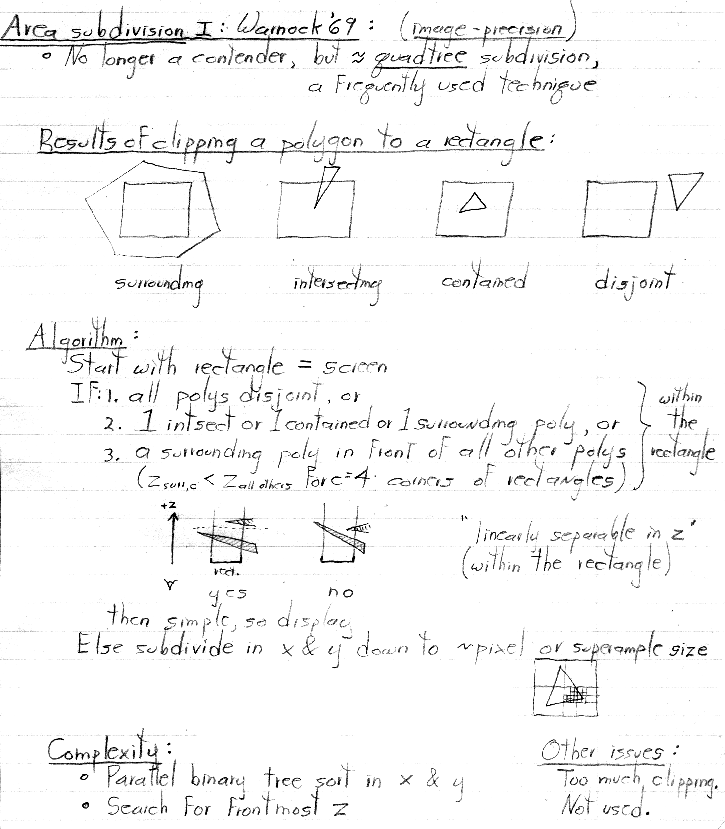 Area subdivision I: Warnock '69: (image-precision)
• No longer a contender, but ≈ quadtree subdivision,
a frequently used technique
Results of clipping a polygon to a rectangle:
surrounding intersecting contained disjoint
Algorithm:
Start with rectangle = screen
IF: 1. all polys disjoint, or
2. 1 intsect or 1 contained or 1 surrounding poly, or
3. a surrounding poly in front of all other polys
(z surr,c < z all others for c=4 corners of rectangles)
} within
the
rectangle
+z
rect.
yes no
"linearly separable in z"
(within the rectangle)
then simple, so display
Else subdivide in x & y down to ~pixel or supersample size
Complexity:
• Parallel binary tree sort in x & y
• Search for frontmost z
Other issues:
Too much clipping.
Not used.